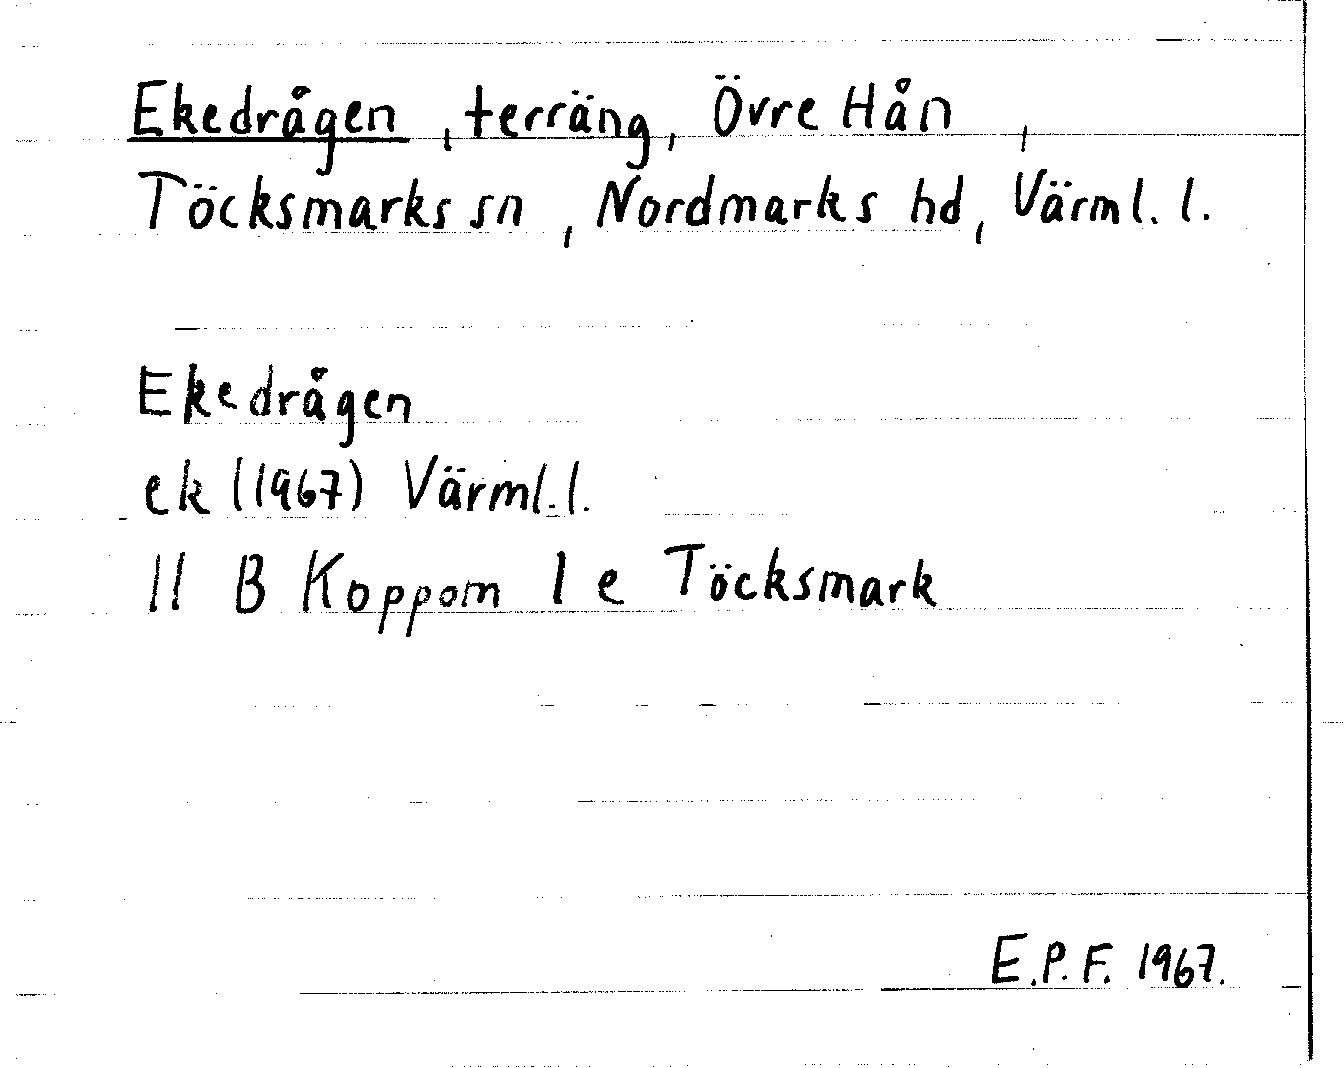 Ekedrågen, terräng, Övre Hån,
Töcksmarks sn, Nordmarks hd, Värml. l.
Ekedrågen
ek (1967) Värml. l.
11 B Koppom 1 e Töcksmark
E.P.F. 1967.